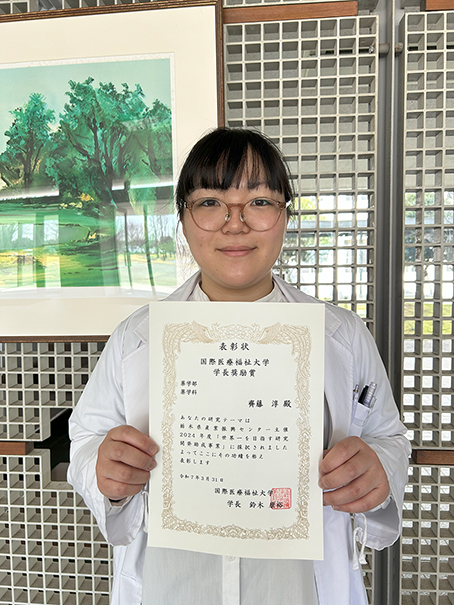 表彰状
国際医療福祉大学
学長奨励賞
薬学部
薬学科
齊藤 淳 殿
あなたの研究テーマは
栃木県産業振興センター主催
2024年度「世界一を目指す研究
開発助成事業」に採択されました
よってここにその功績を称え
表彰します
令和7年3月31日
国際医療福祉大学
学長 鈴木 康裕